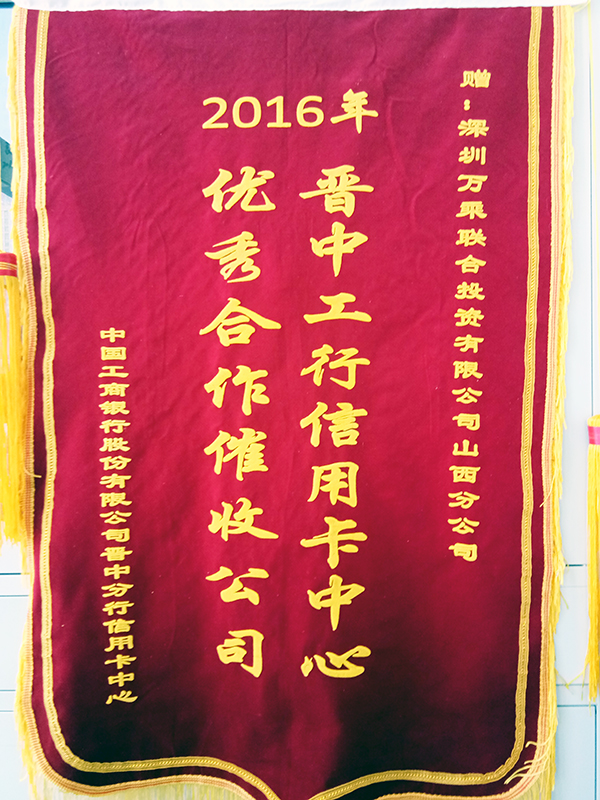 赠：深圳万乘联合投资有限公司山西分公司
2016年
晋中工行信用卡中心
优秀合作催收公司
中国工商银行股份有限公司晋中分行信用卡中心